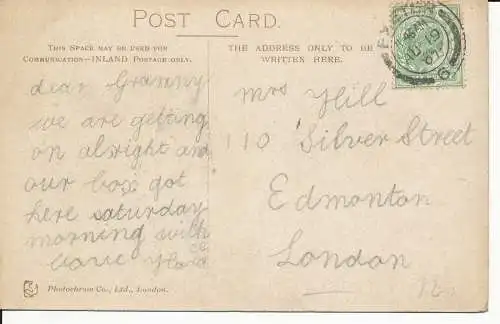 POST CARD.
THIS SPACE MAY BE USED FOR
COMMUNICATION—INLAND POSTAGE ONLY.
THE ADDRESS ONLY TO BE
WRITTEN HERE.
dear Granny
we are getting
on alsright and
our box got
here saturday
morning with
love
Mrs Hill
110 Silver Street
Edmonton
London
N.
Photochrom Co., Ltd., London.